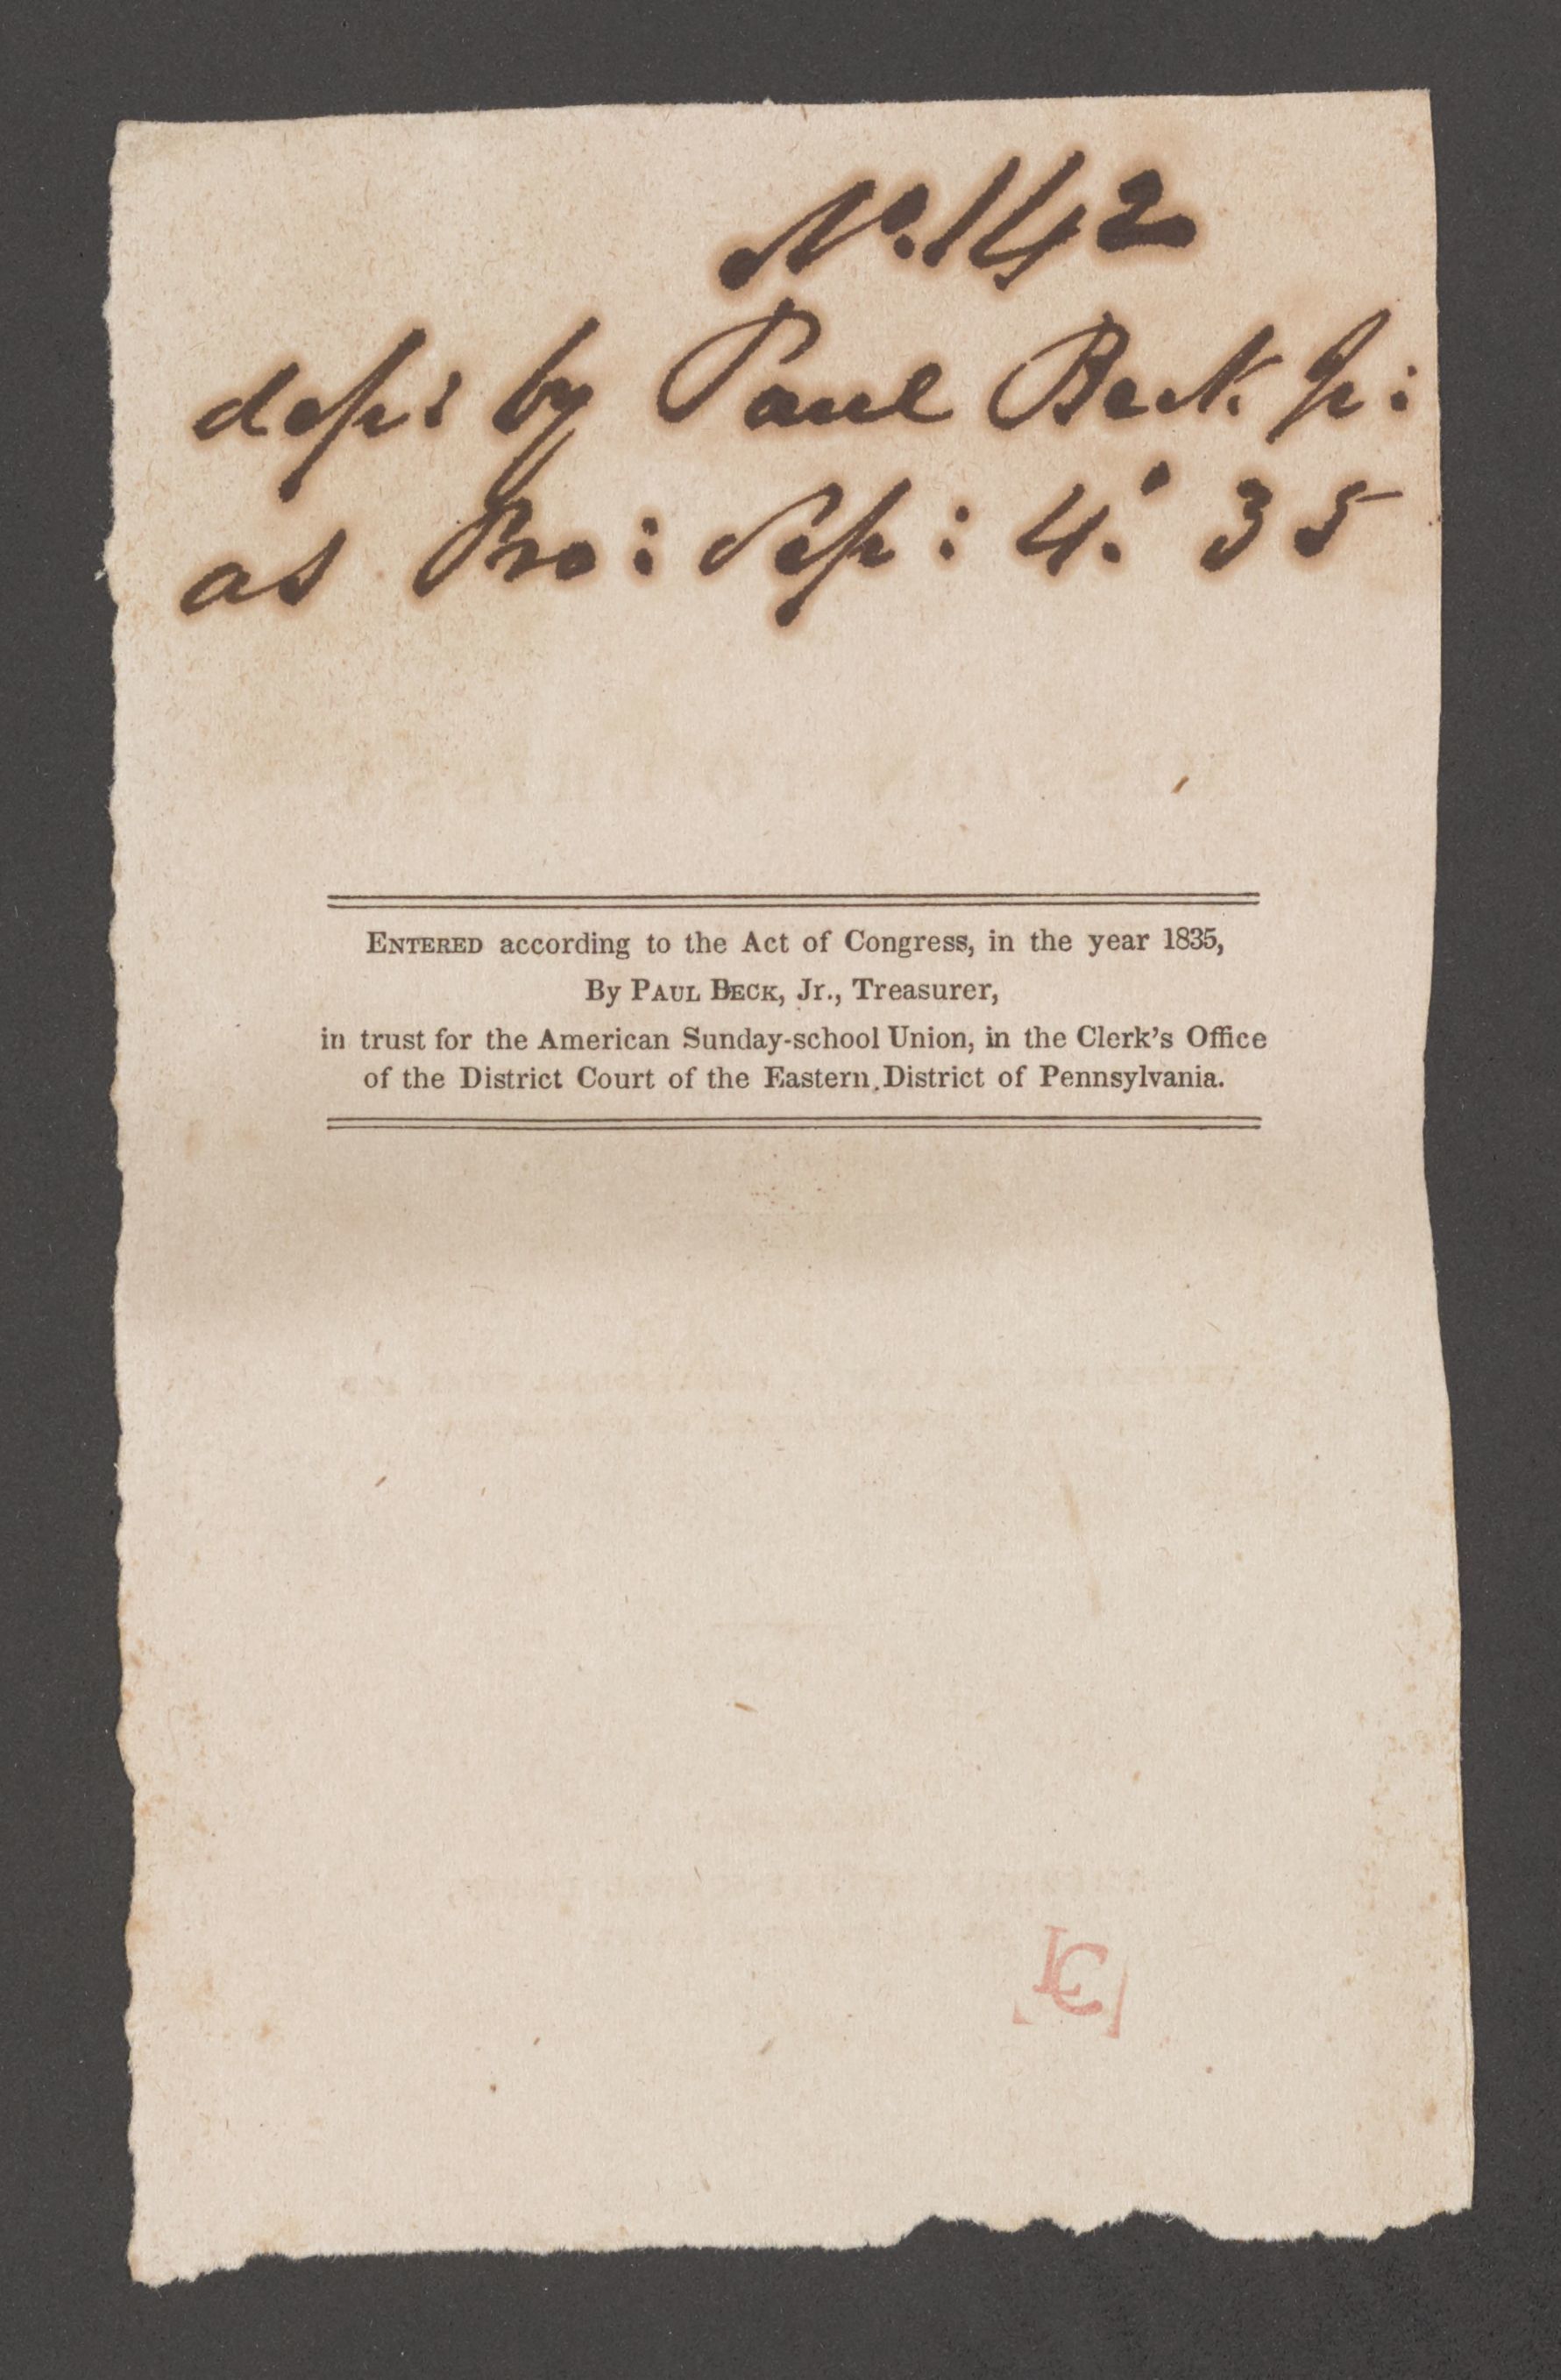 No. 142
dep: by Paul Beck Jr:
as Pro: Sep: 4: 35
ENTERED according to the Act of Congress, in the year 1835,
By PAUL BECK, Jr., Treasurer,
in trust for the American Sunday-school Union, in the Clerk's Office
of the District Court of the Eastern District of Pennsylvania.
LC